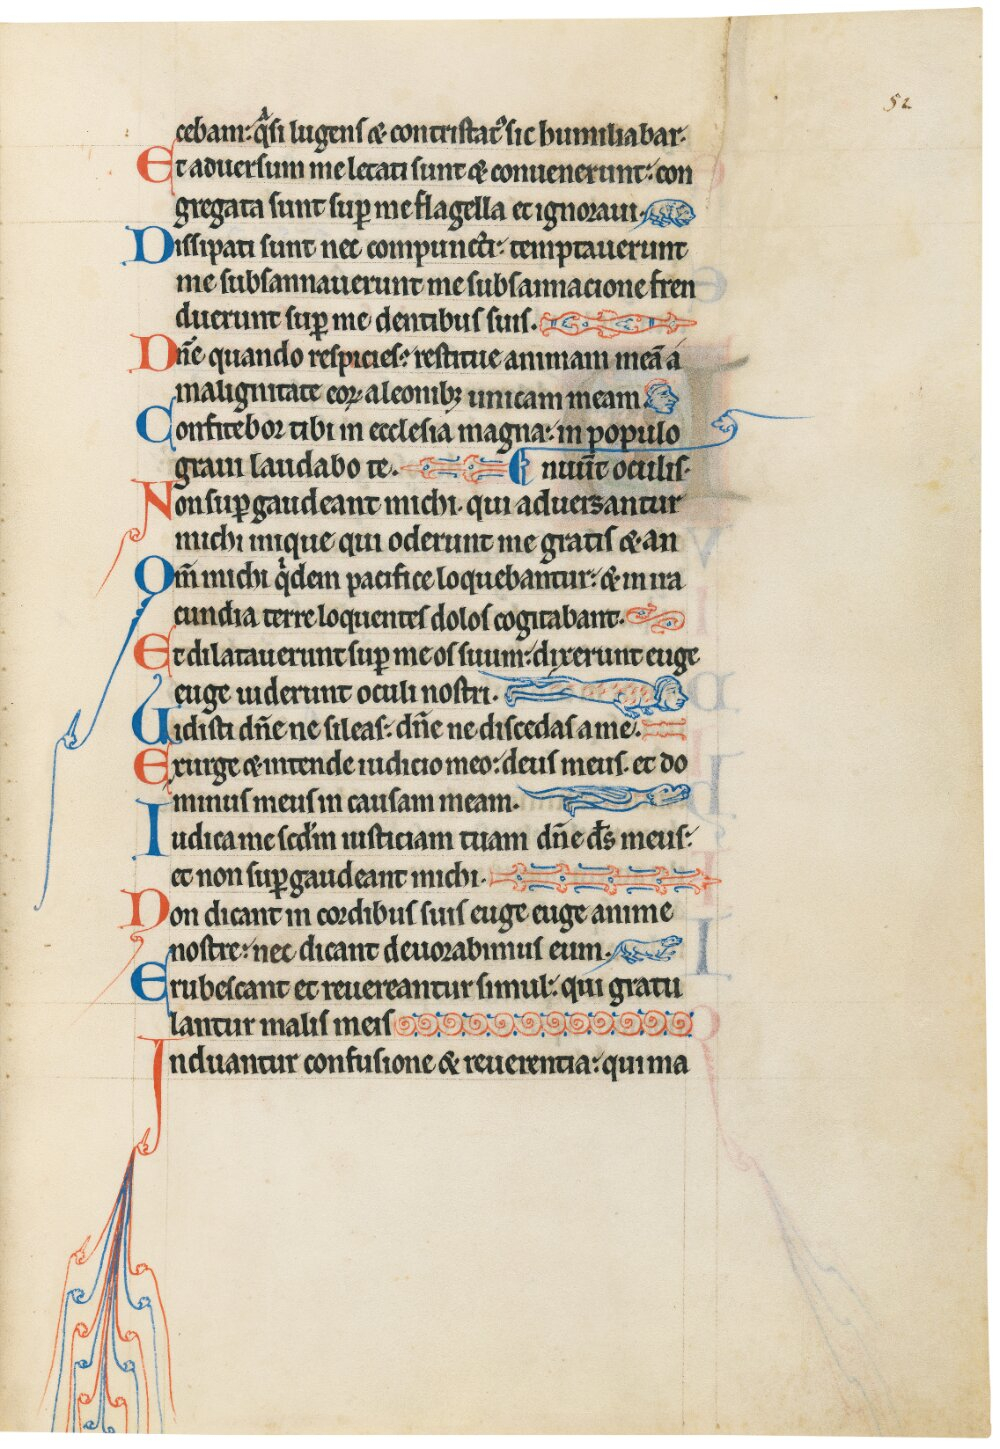 52
cebam: q̃si lugens & contristat᷒ sic humiliabar·
Et aduersum me letati sunt & conuenerunt: con
gregata sunt sup̱ me flagella et ignoraui.
Dissipati sunt nec compuncti: temptauerunt
me subsannauerunt me subsannacione fren
duerunt sup̱ me dentibus suis.
Dñe quando respicies: restitue animam meã a
malignitate eoꝝ aleonibꝫ unicam meam
Confitebor tibi in ecclesia magna: in populo
graui laudabo te. nuũt oculis·
Non sup̱gaudeant michi· qui aduersantur
michi inique qui oderunt me gratis & an
Qm̃ michi q̇dem pacifice loquebantur: & in ira
cundia terre loquentes dolos cogitabant.
Et dilatauerunt sup̱ me os suum: dixerunt euge
euge uiderunt oculi nostri.
Uidisti dñe ne sileas: dñe ne discedas a me.
Exurge & intende iudicio meo: deus meus· et do
minus meus in causam meam.
Iudica me scd̃m iusticiam tuam dñe d̃s meus:
et non sup̱gaudeant michi.
Non dicant in cordibus suis euge euge anime
nostre: nec dicant deuorabimus eum.
Erubescant et reuereantur simul: qui gratu
lantur malis meis
Induantur confusione & reuerentia: qui ma